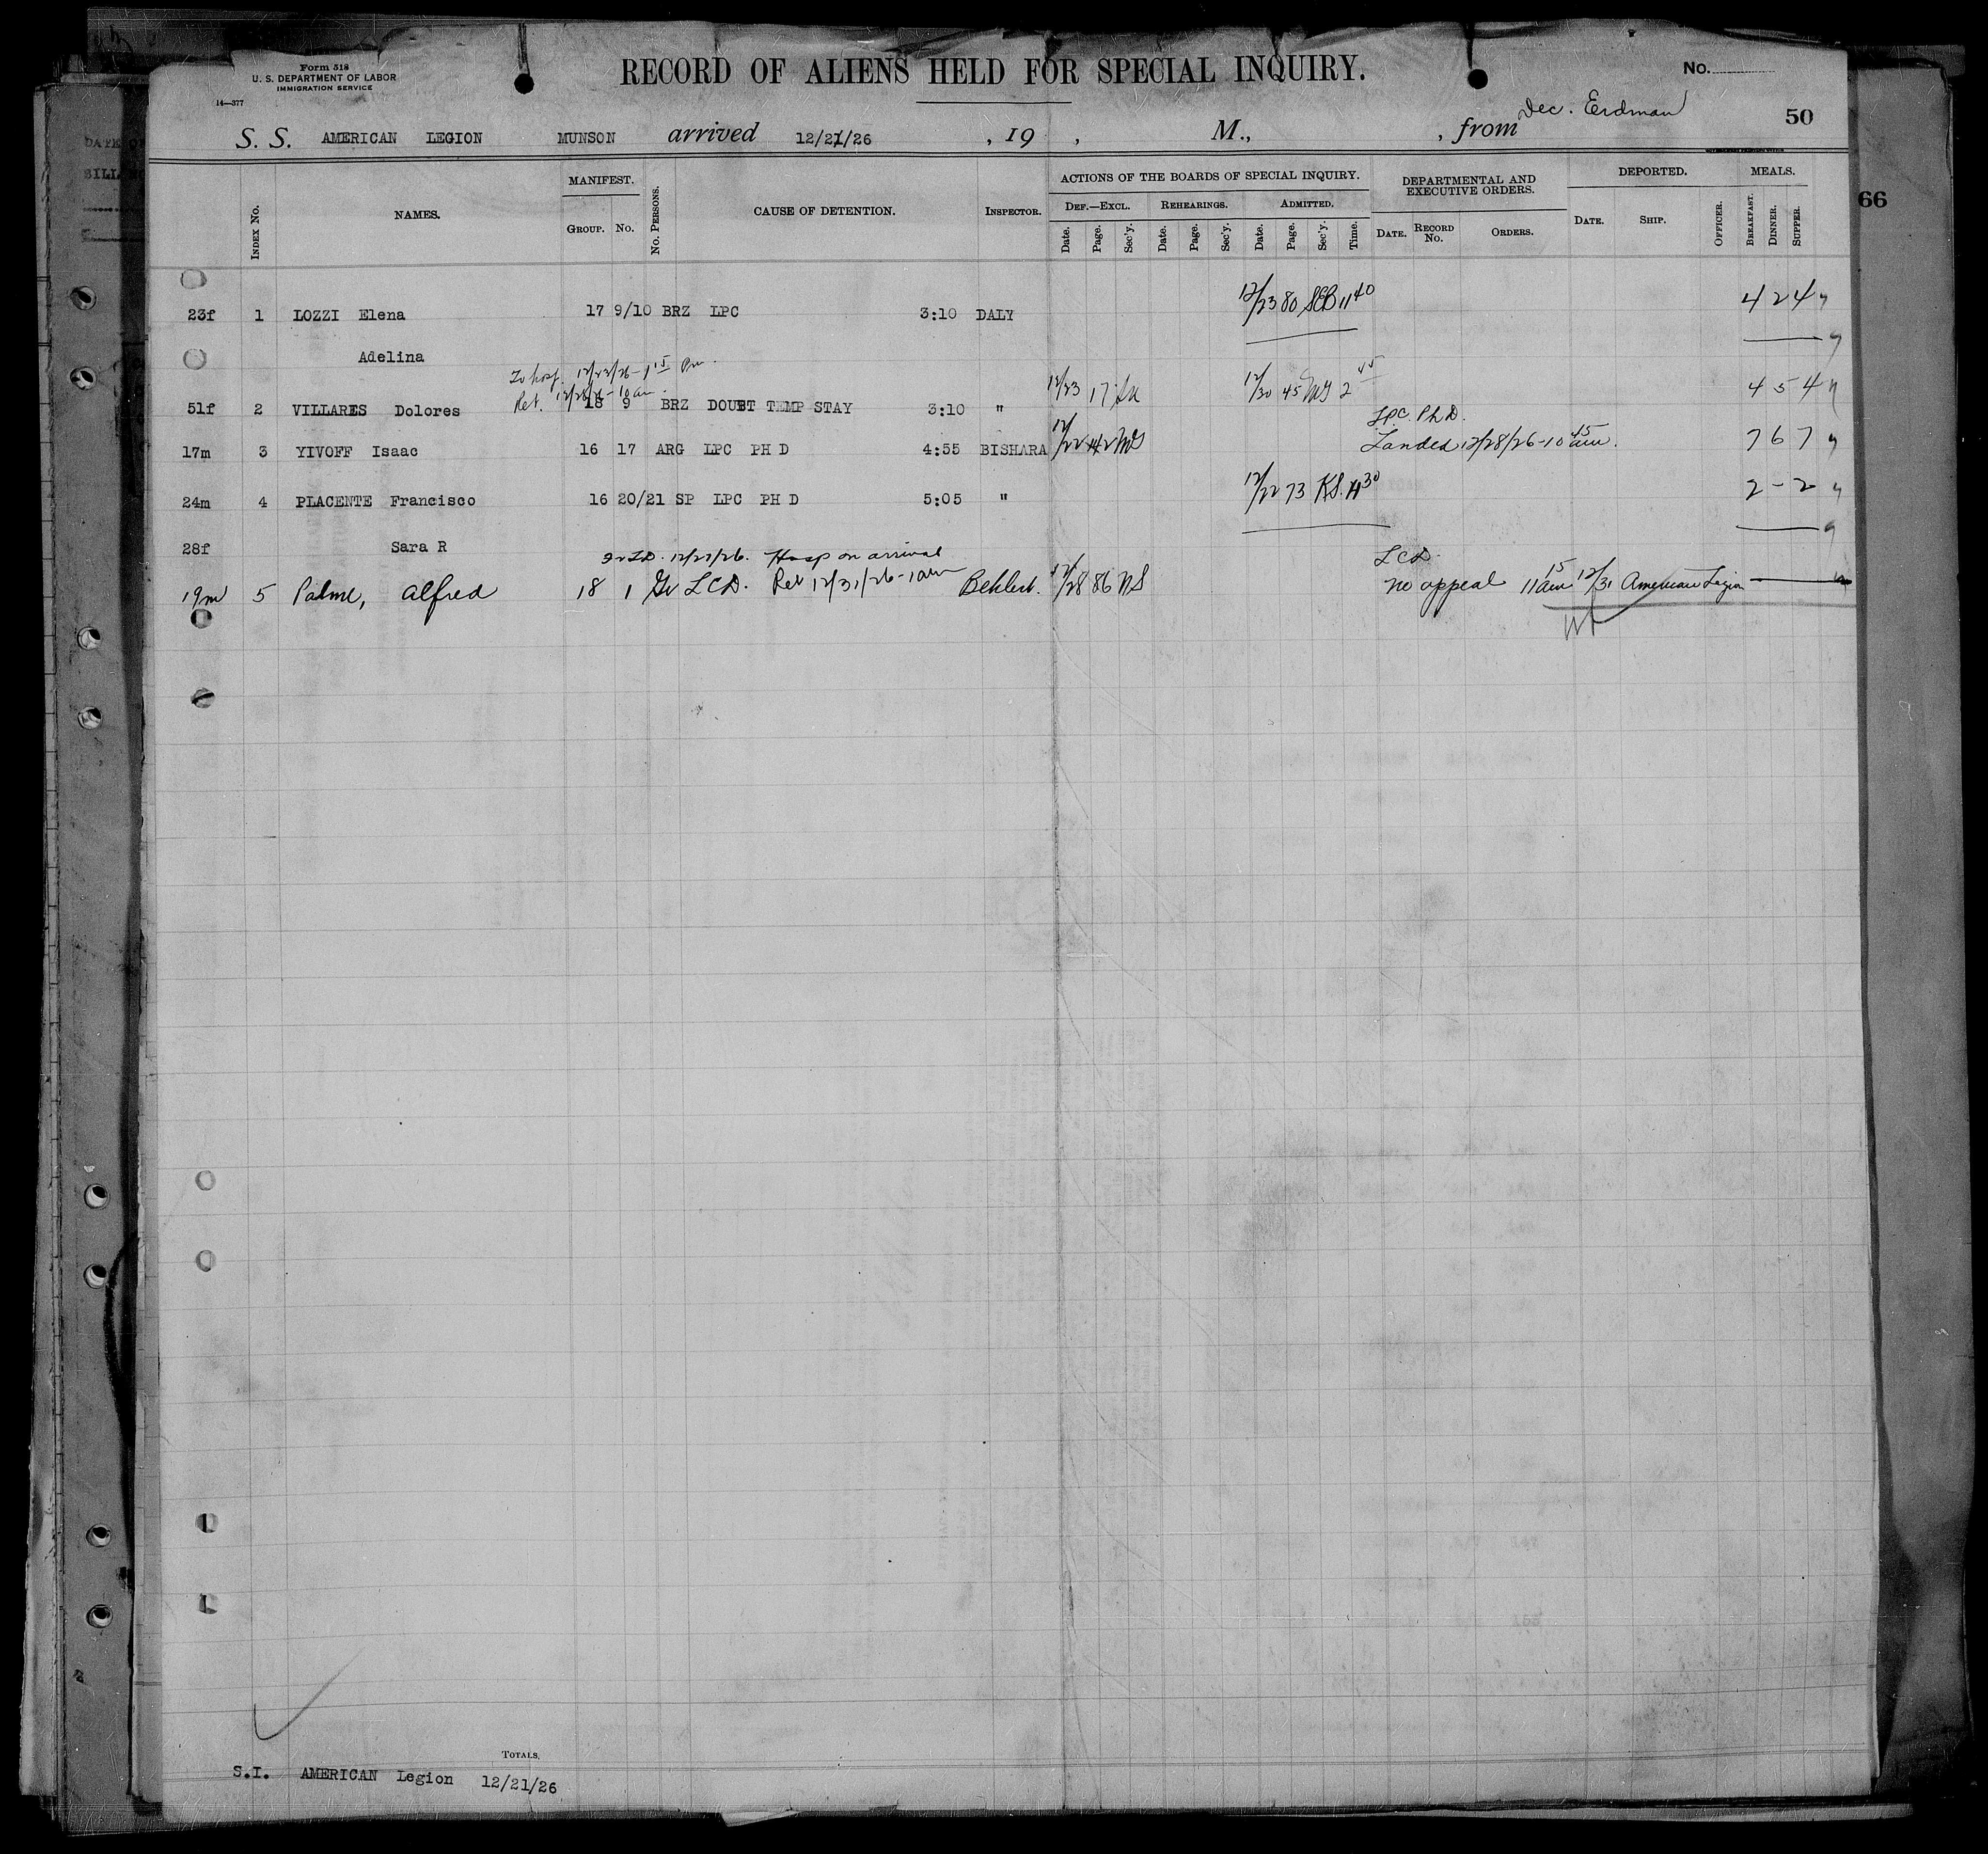 Form 518
U. S. DEPARTMENT OF LABOR
IMMIGRATION SERVICE
14—377
RECORD OF ALIENS HELD FOR SPECIAL INQUIRY.
No.
50
66
S. S. AMERICAN LEGION MUNSON arrived 12/21/26 , 19 , M., , from Dec. Erdman
INDEX No. NAMES. MANIFEST. GROUP. No. No. PERSONS. CAUSE OF DETENTION. INSPECTOR.
ACTIONS OF THE BOARDS OF SPECIAL INQUIRY.
DEF.—EXCL. Date. Page. Sec'y. REHEARINGS. Date. Page. Sec'y. ADMITTED. Date. Page. Sec'y. Time.
DEPARTMENTAL AND EXECUTIVE ORDERS. DATE. RECORD No. ORDERS.
DEPORTED. DATE. SHIP. OFFICER.
MEALS. BREAKFAST. DINNER. SUPPER.
23f 1 LOZZI Elena 17 9/10 BRZ LPC 3:10 DALY 12/23 80 SEB 11 40 4 2 4
Adelina
To hosp. 12/23/26 - 1 15 Pm.
Ret. 12/28/26 - 10 am
51f 2 VILLARES Dolores 18 9 BRZ DOUBT TEMP STAY 3:10 " 12/23 17 12/30 45 2 45 4 5 4
LPC. Ph.D.
17m 3 YIVOFF Isaac 16 17 ARG LPC PH D 4:55 BISHARA 12/22 42 MS Landed 12/28/26 - 10 45 am. 7 6 7
24m 4 PLACENTE Francisco 16 20/21 SP LPC PH D 5:05 " 12/22 73 KS. 11 30 2 - 2
28f Sara R
12/27/26. Hosp on arrival
LCD
19m 5 Palme, Alfred 18 1 Gr LCD. Ret 12/31/26 - 10 am 12/28 86 NS no appeal 11 15 am 12/31 American Legion
TOTALS.
S.I. AMERICAN Legion 12/21/26